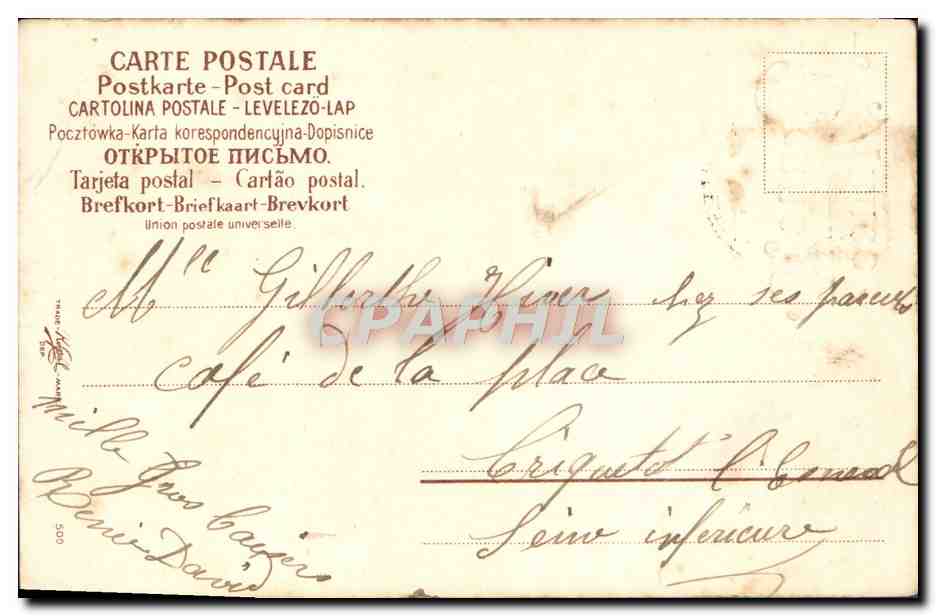 CARTE POSTALE
Postkarte - Post card
CARTOLINA POSTALE - LEVELEZÖ-LAP
Pocztówka-Karta korespondencyjna-Dopisnice
ОТКРЫТОЕ ПИСЬМО.
Tarjeta postal - Cartão postal.
Brefkort-Briefkaart-Brevkort
Union postale universelle.
Mlle Gilberthe hez ses parents
CPAPHIL
café de la place
Criquetot l'Esneval
Seine inférieure
TRADE-MARK
DEP.
500
Mille Gros baisers
David